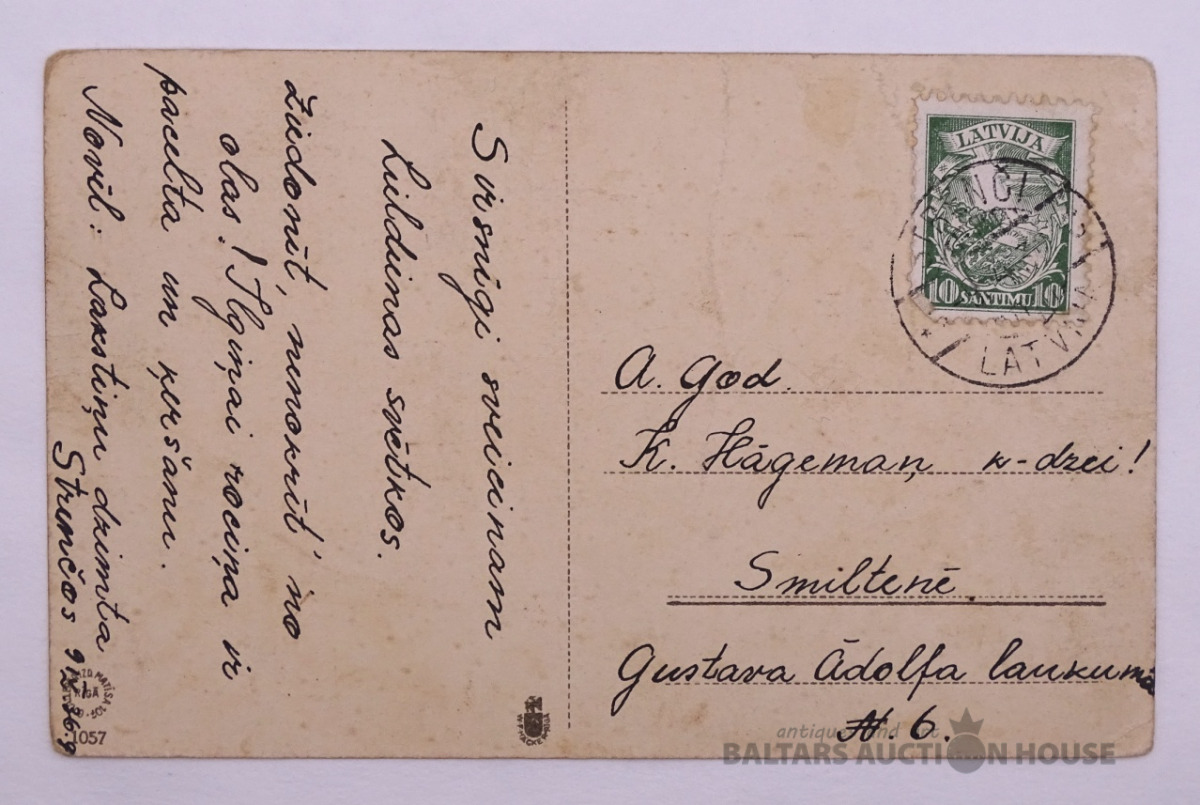 Sirsnīgi sveicinam
Lieldienas svētkos.
Ziedonīt, nenokrīt' no
olas! Ilgiņai rociņa ir
pacelta un ķeršanu.
Novēl: Lakstiņu dzimta
Strenčos
1057
LATVIJA
10 SANTIMU 10
NČI
LATVIJA
A. God.
K. Hāgemaņ k-dzei!
Smiltenē
Gustava Ādolfa laukumā
N. 6.
antiques and art
BALTARS AUCTION HOUSE